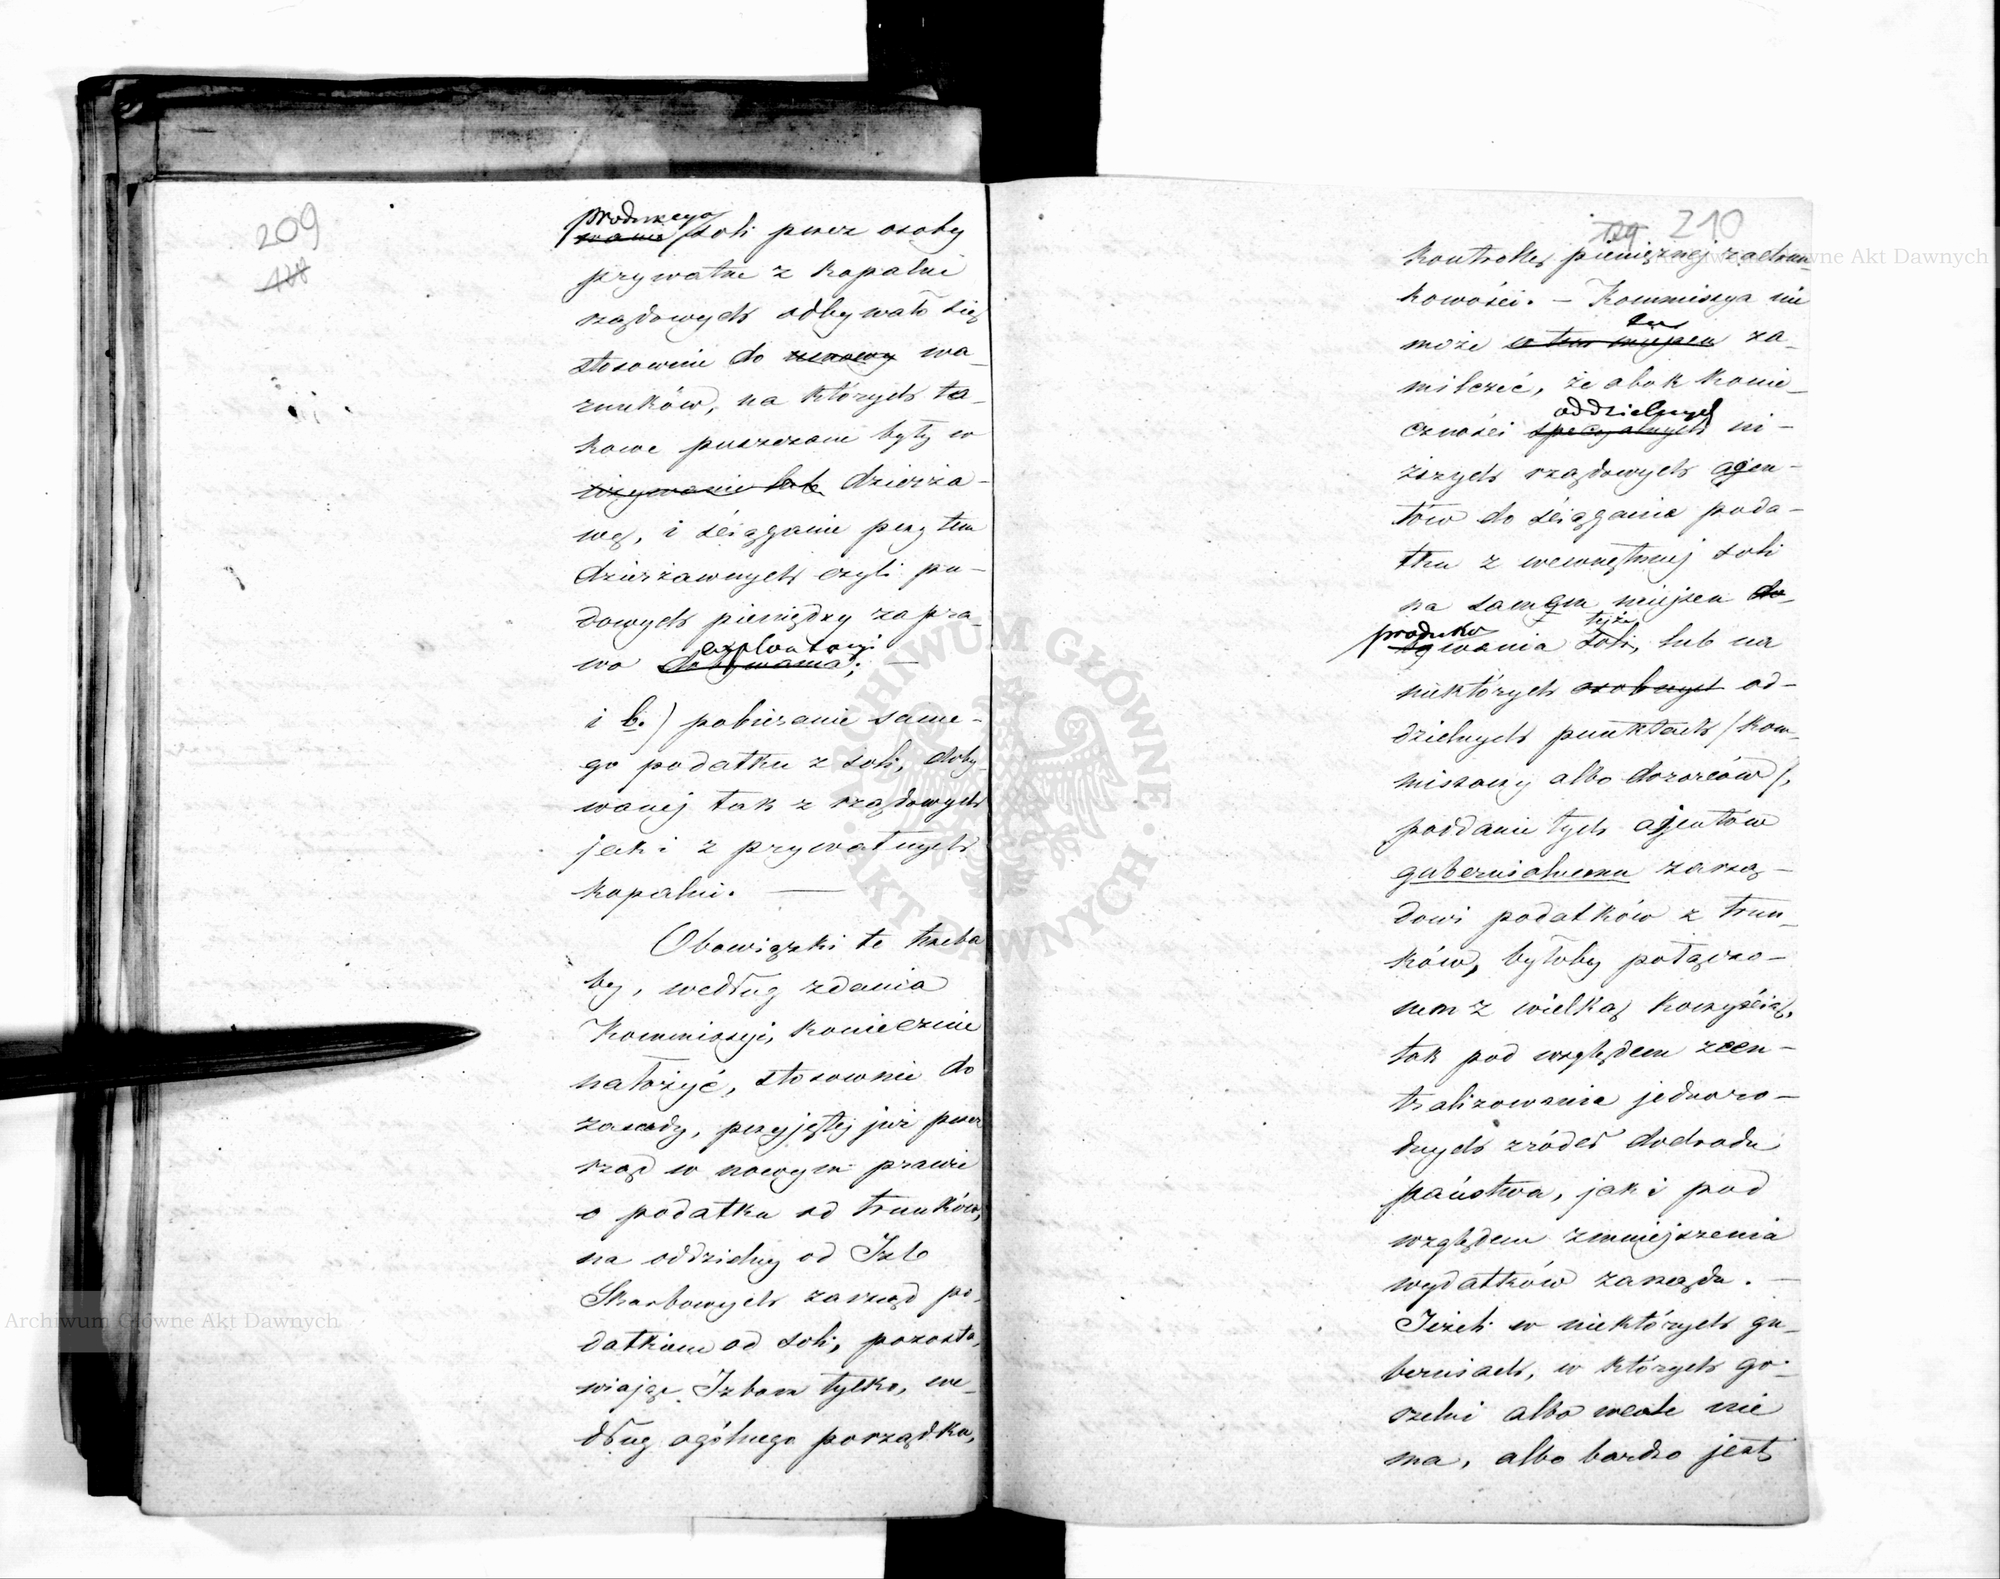 209
128
produkcya
wanie soli przez osoby
prywatne z kopalni
rządowych odbywało się
stosownie do umowy wa-
runków, na których ta-
kowe puszczone były w
używanie lub dzierża-
wę, i ściąganie przy tem
dzierżawnych czyli pu-
dowych pieniędzy za pra-
exploatacyi
wo dobywania; —
i b.) pobieranie same-
go podatku z soli, doby-
wanej tak z rządowych
jak i z prywatnych
kopalni. —
Obowiązki te trzeba
by, według zdania
Kommissyi, koniecznie
nałożyć, stosownie do
zasady, przyjętej już przez
rząd w nowym prawie
o podatku od trunków,
na oddzielny od Izb
Skarbowych zarząd po-
datkiem od soli, pozosta-
wiając Izbom tylko, we-
dług ogólnego porządku,
129 210
kontrolę pieniężnej rachun-
kowości. — Kommissya nie
tu
może w tem miejscu za-
milczeć, że obok konie-
oddzielnych
czności specyalnych ni-
ższych rządowych ajen-
tów do ściągania poda-
tku z wewnętrznej soli
na samem miejscu do-
produko tejże
bywania soli, lub na
niektórych osobnych od-
dzielnych punktach (kom-
missarzy albo dozorców),
poddanie tych ajentów
gubernialnemu zarzą-
dowi podatków z trun-
ków, byłoby połączo-
nem z wielką korzyścią,
tak pod względem zcen-
tralizowania jednoro-
dnych źródeł dochodu
państwa, jak i pod
względem zmniejszenia
wydatków zarządu. —
Jeżeli w niektórych gu-
berniach, w których go-
rzelni albo wcale nie
ma, albo bardzo jest
ARCHIWUM GŁÓWNE AKT DAWNYCH
Archiwum Główne Akt Dawnych
Archiwum Główne Akt Dawnych